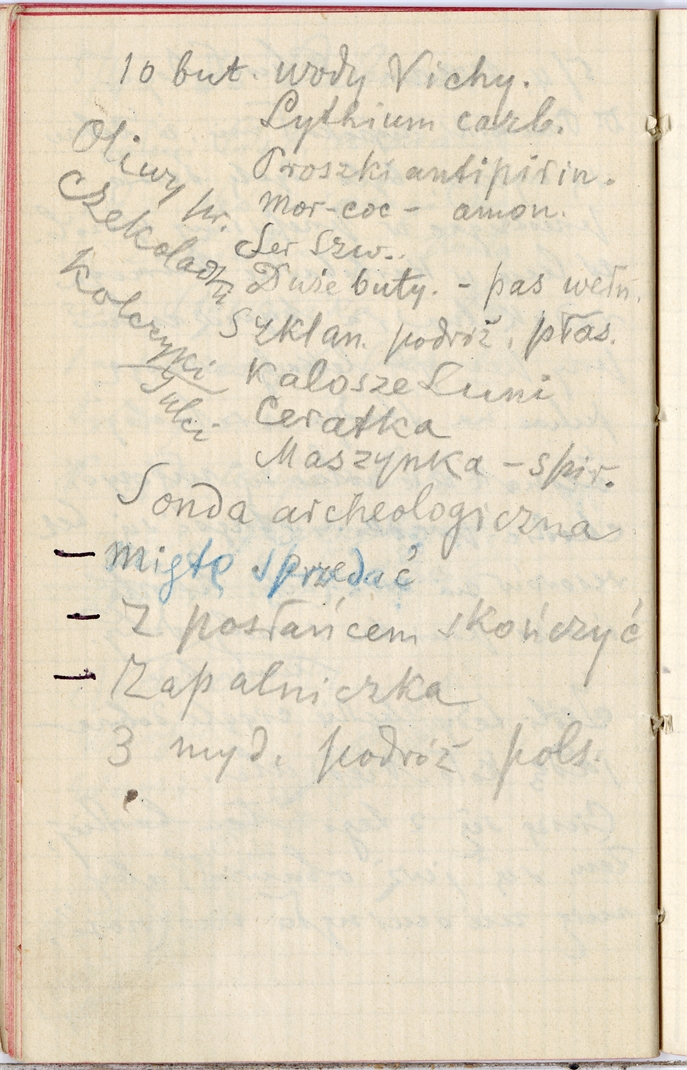 10 but. wody Vichy.
Lythium carb.
Proszki antipirin.
Mor-coc - amon.
Ser Szw..
Duże buty. - pas wełn.
Szklan. podróż. płas.
Kalosze Luni
Ceratka
Maszynka - spir.
Oliwy pr.
Czekoladki
Kolczyki
Julci
Sonda archeologiczna
- Migtę sprzedać
- Z posłańcem skończyć
- Zapalniczka
3 myd. podróż pols.